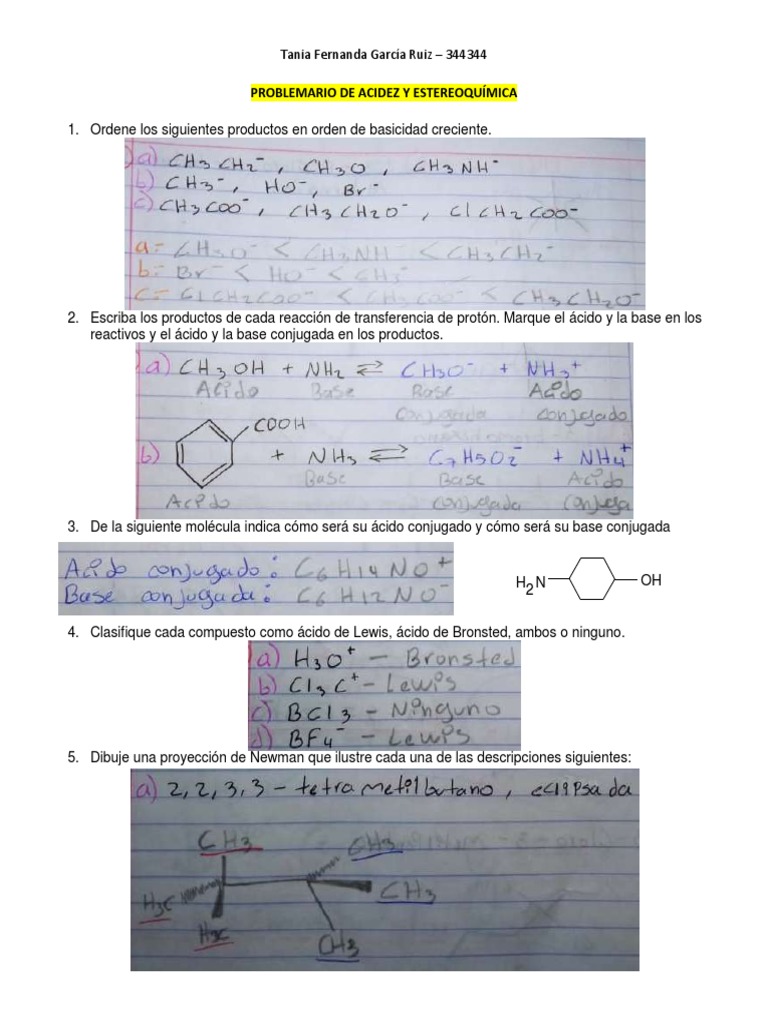 Tania Fernanda García Ruiz – 344344
PROBLEMARIO DE ACIDEZ Y ESTEREOQUÍMICA
1. Ordene los siguientes productos en orden de basicidad creciente.
a) CH3CH2⁻, CH3O, CH3NH⁻
b) CH3⁻, HO⁻, Br⁻
c) CH3COO⁻, CH3CH2O⁻, ClCH2COO⁻
a= CH3O⁻ < CH3NH⁻ < CH3CH2⁻
b= Br⁻ < HO⁻ < CH3⁻
c= ClCH2COO⁻ < CH3COO⁻ < CH3CH2O⁻
2. Escriba los productos de cada reacción de transferencia de protón. Marque el ácido y la base en los
reactivos y el ácido y la base conjugada en los productos.
a) CH3OH + NH2 ⇌ CH3O⁻ + NH3⁺
Acido Base Base Acido
conjugada conjugado
COOH
b) + NH3 ⇌ C7H5O2⁻ + NH4⁺
Base Base Acido
Acido conjugada conjuga
3. De la siguiente molécula indica cómo será su ácido conjugado y cómo será su base conjugada
Acido conjugado: C6H14NO⁺
Base conjugada: C6H12NO⁻
H2N OH
4. Clasifique cada compuesto como ácido de Lewis, ácido de Bronsted, ambos o ninguno.
a) H3O⁺ – Bronsted
b) Cl3C⁺ – Lewis
c) BCl3 – Ninguno
d) BF4⁻ – Lewis
5. Dibuje una proyección de Newman que ilustre cada una de las descripciones siguientes:
a) 2,2,3,3 – tetrametilbutano, eclipsada
CH3 CH3
H3C CH3
H3C CH3